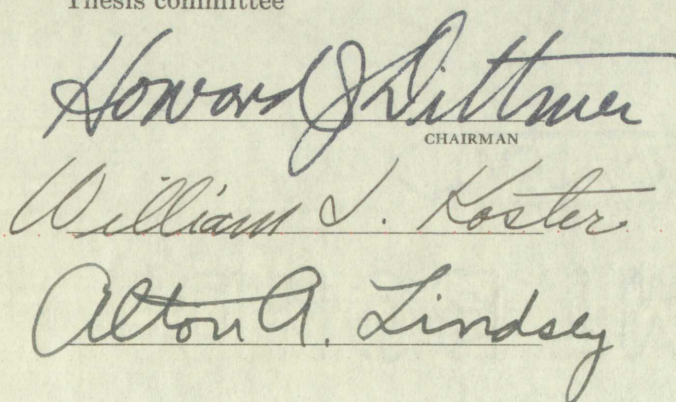 Thesis committee
Howard J Dittmer
CHAIRMAN
William J. Koster
Alton A. Lindsey